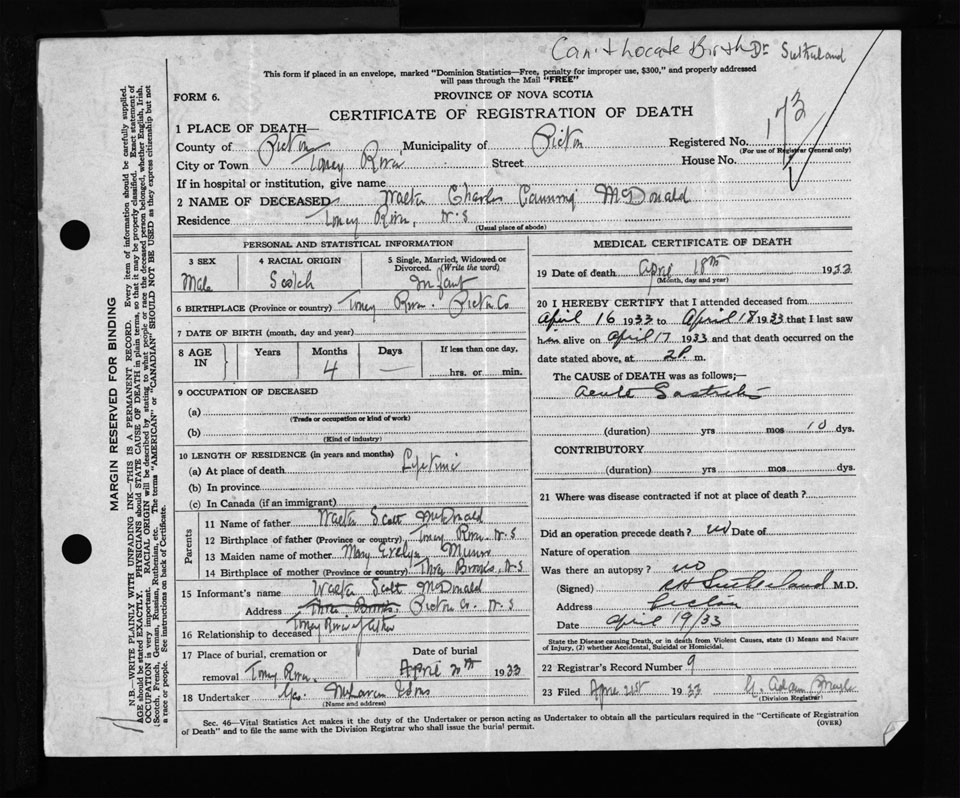 Can't Locate Birth Dr Sutherland
This form if placed in an envelope, marked "Dominion Statistics—Free, penalty for improper use, $300," and properly addressed
will pass through the Mail "FREE"
FORM 6.
PROVINCE OF NOVA SCOTIA
CERTIFICATE OF REGISTRATION OF DEATH
173
1 PLACE OF DEATH—
County of Pictou, Municipality of Pictou Registered No.
(For use of Registrar General only)
City or Town Toney River Street House No.
If in hospital or institution, give name
2 NAME OF DECEASED Walter Charles Canning McDonald
Residence Toney River, N.S
(Usual place of abode)
PERSONAL AND STATISTICAL INFORMATION
3 SEX
Male
4 RACIAL ORIGIN
Scotch
5 Single, Married, Widowed or
Divorced. (Write the word)
Infant
6 BIRTHPLACE (Province or country) Toney River. Pictou Co.
7 DATE OF BIRTH (month, day and year)
8 AGE IN
Years
Months
4
Days
—
If less than one day,
hrs. or min.
9 OCCUPATION OF DECEASED
(a)
(Trade or occupation or kind of work)
(b)
(Kind of industry)
10 LENGTH OF RESIDENCE (in years and months)
(a) At place of death Lifetime
(b) In province
(c) In Canada (if an immigrant)
Parents
11 Name of father Walter Scott McDonald
12 Birthplace of father (Province or country) Toney River. N.S
13 Maiden name of mother Mary Evelyn Munro
14 Birthplace of mother (Province or country) Three Brooks, N.S
15 Informant's name Walter Scott McDonald
Address Three Brooks. Pictou Co. N.S
Toney River
16 Relationship to deceased father
17 Place of burial, cremation or
removal Toney River.
Date of burial
April 20th 1933
18 Undertaker Geo. McLaren & Sons
(Name and address)
MEDICAL CERTIFICATE OF DEATH
19 Date of death April 18th 1933
(Month, day and year)
20 I HEREBY CERTIFY that I attended deceased from
April 16 1933 to April 18 1933 that I last saw
him alive on April 17 1933 and that death occurred on the
date stated above, at 2 P. m.
The CAUSE of DEATH was as follows;—
acute Gastritis
(duration) yrs mos 10 dys.
CONTRIBUTORY
(duration) yrs mos dys.
21 Where was disease contracted if not at place of death?
Did an operation precede death? no Date of
Nature of operation
Was there an autopsy? no
(Signed) Sutherland M.D.
Address Pictou
Date April 19/33
State the Disease causing Death, or in death from Violent Causes, state (1) Means and Nature
of Injury, (2) whether Accidental, Suicidal or Homicidal.
22 Registrar's Record Number 9
23 Filed April 21st 1933
(Division Registrar)
Sec. 46—Vital Statistics Act makes it the duty of the Undertaker or person acting as Undertaker to obtain all the particulars required in the "Certificate of Registration
of Death" and to file the same with the Division Registrar who shall issue the burial permit.
(OVER)
MARGIN RESERVED FOR BINDING
N.B.—WRITE PLAINLY WITH UNFADING INK—THIS IS A PERMANENT RECORD. Every item of information should be carefully supplied.
AGE should be stated EXACTLY. PHYSICIANS should STATE CAUSE OF DEATH in plain terms, so that it may be properly classified. Exact statement of
OCCUPATION is very important. RACIAL ORIGIN will be described by stating to what people or race the deceased person belonged, whether English, Irish,
Scotch, French, German, Russian, Ruthenian, etc. The terms "AMERICAN" or "CANADIAN" SHOULD NOT BE USED as they express citizenship but not
a race or people. See instructions on back of Certificate.